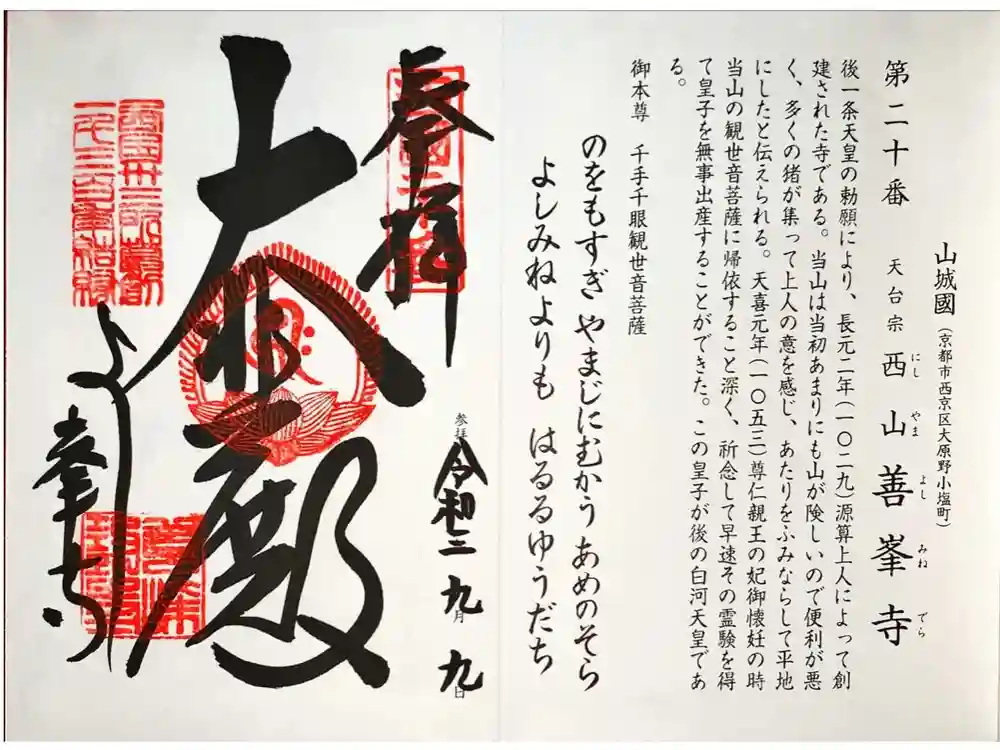 山城國（京都市西京区大原野小塩町）
第二十番 天台宗 西山善峯寺
にし やま よし みね でら
後一条天皇の勅願により、長元二年（一〇二九）源算上人によって創
建された寺である。当山は当初あまりにも山が険しいので便利が悪
く、多くの猪が集って上人の意を感じ、あたりをふみならして平地
にしたと伝えられる。天喜元年（一〇五三）尊仁親王の妃御懐妊の時
当山の観世音菩薩に帰依すること深く、祈念して早速その霊験を得
て皇子を無事出産することができた。この皇子が後の白河天皇であ
る。
御本尊 千手千眼観世音菩薩
のをもすぎ やまじにむかう あめのそら
よしみねよりも はるるゆうだち
奉拝
参拝 令和三 九月 九日
大悲殿